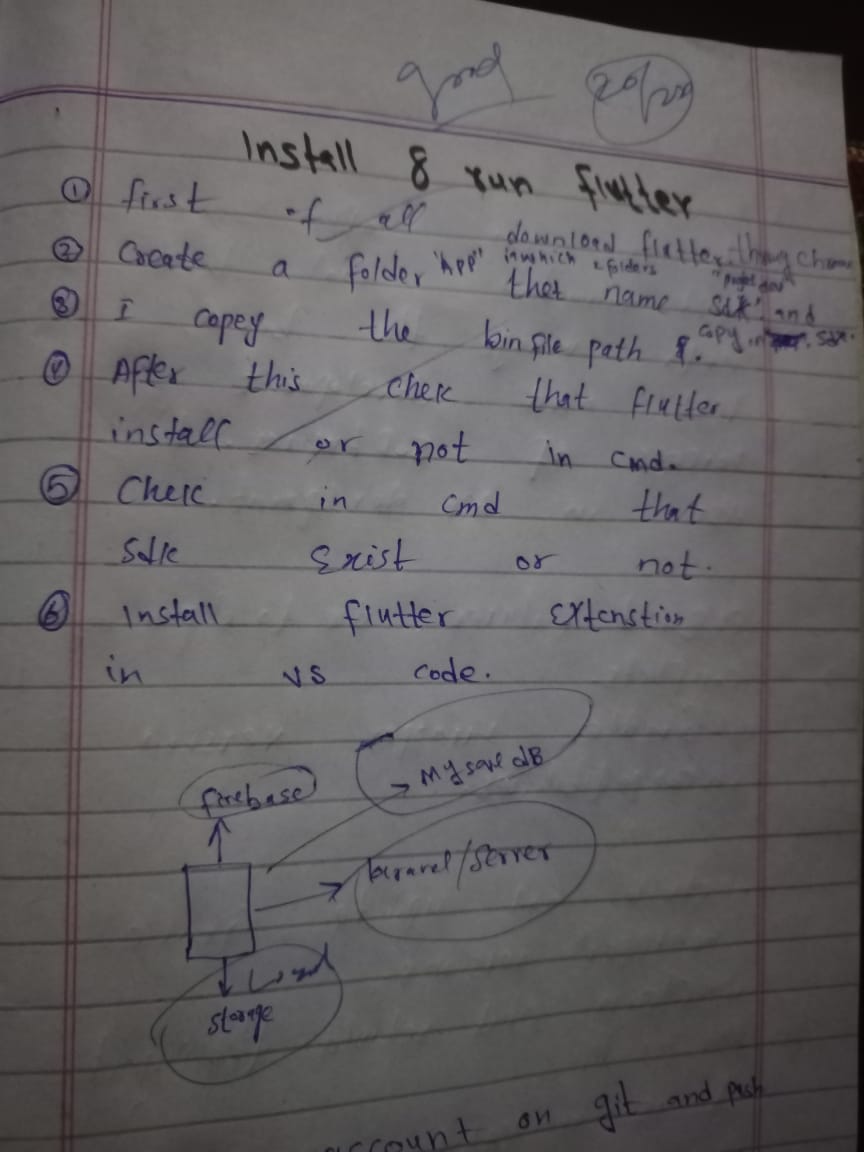 good 20/20
Install & run flutter
① first of all download flutter throug chrome
② Create a folder "APP" in which 2 folders "project dav"
that name sdk" and
③ I copey the bin file path &. copy in sdk.
④ After this chek that flutter
install or not in cmd.
⑤ Chek in cmd that
Sdk Exist or not.
⑥ Install flutter Extenstion
in vs code.
My save dB
firebase
Laravel/Server
Storage
account on git and push